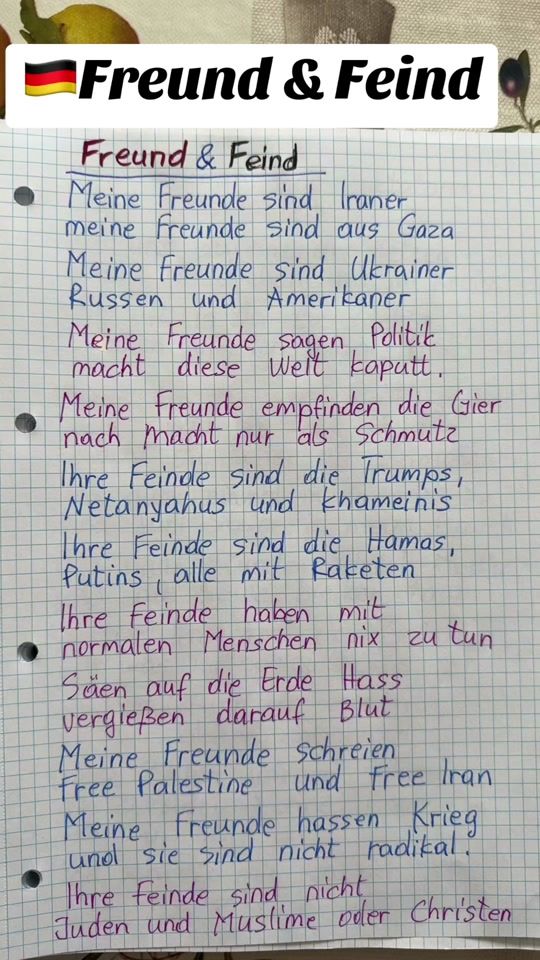 🇩🇪Freund & Feind
Freund & Feind
Meine Freunde sind Iraner
meine Freunde sind aus Gaza
Meine Freunde sind Ukrainer
Russen und Amerikaner
Meine Freunde sagen Politik
macht diese Welt kaputt.
Meine Freunde empfinden die Gier
nach Macht nur als Schmutz
Ihre Feinde sind die Trumps,
Netanyahus und Khameinis
Ihre Feinde sind die Hamas,
Putins, alle mit Raketen
Ihre Feinde haben mit
normalen Menschen nix zu tun
Säen auf die Erde Hass
vergießen darauf Blut
Meine Freunde schreien
Free Palestine und Free Iran
Meine Freunde hassen Krieg
und sie sind nicht radikal.
Ihre Feinde sind nicht
Juden und Muslime oder Christen